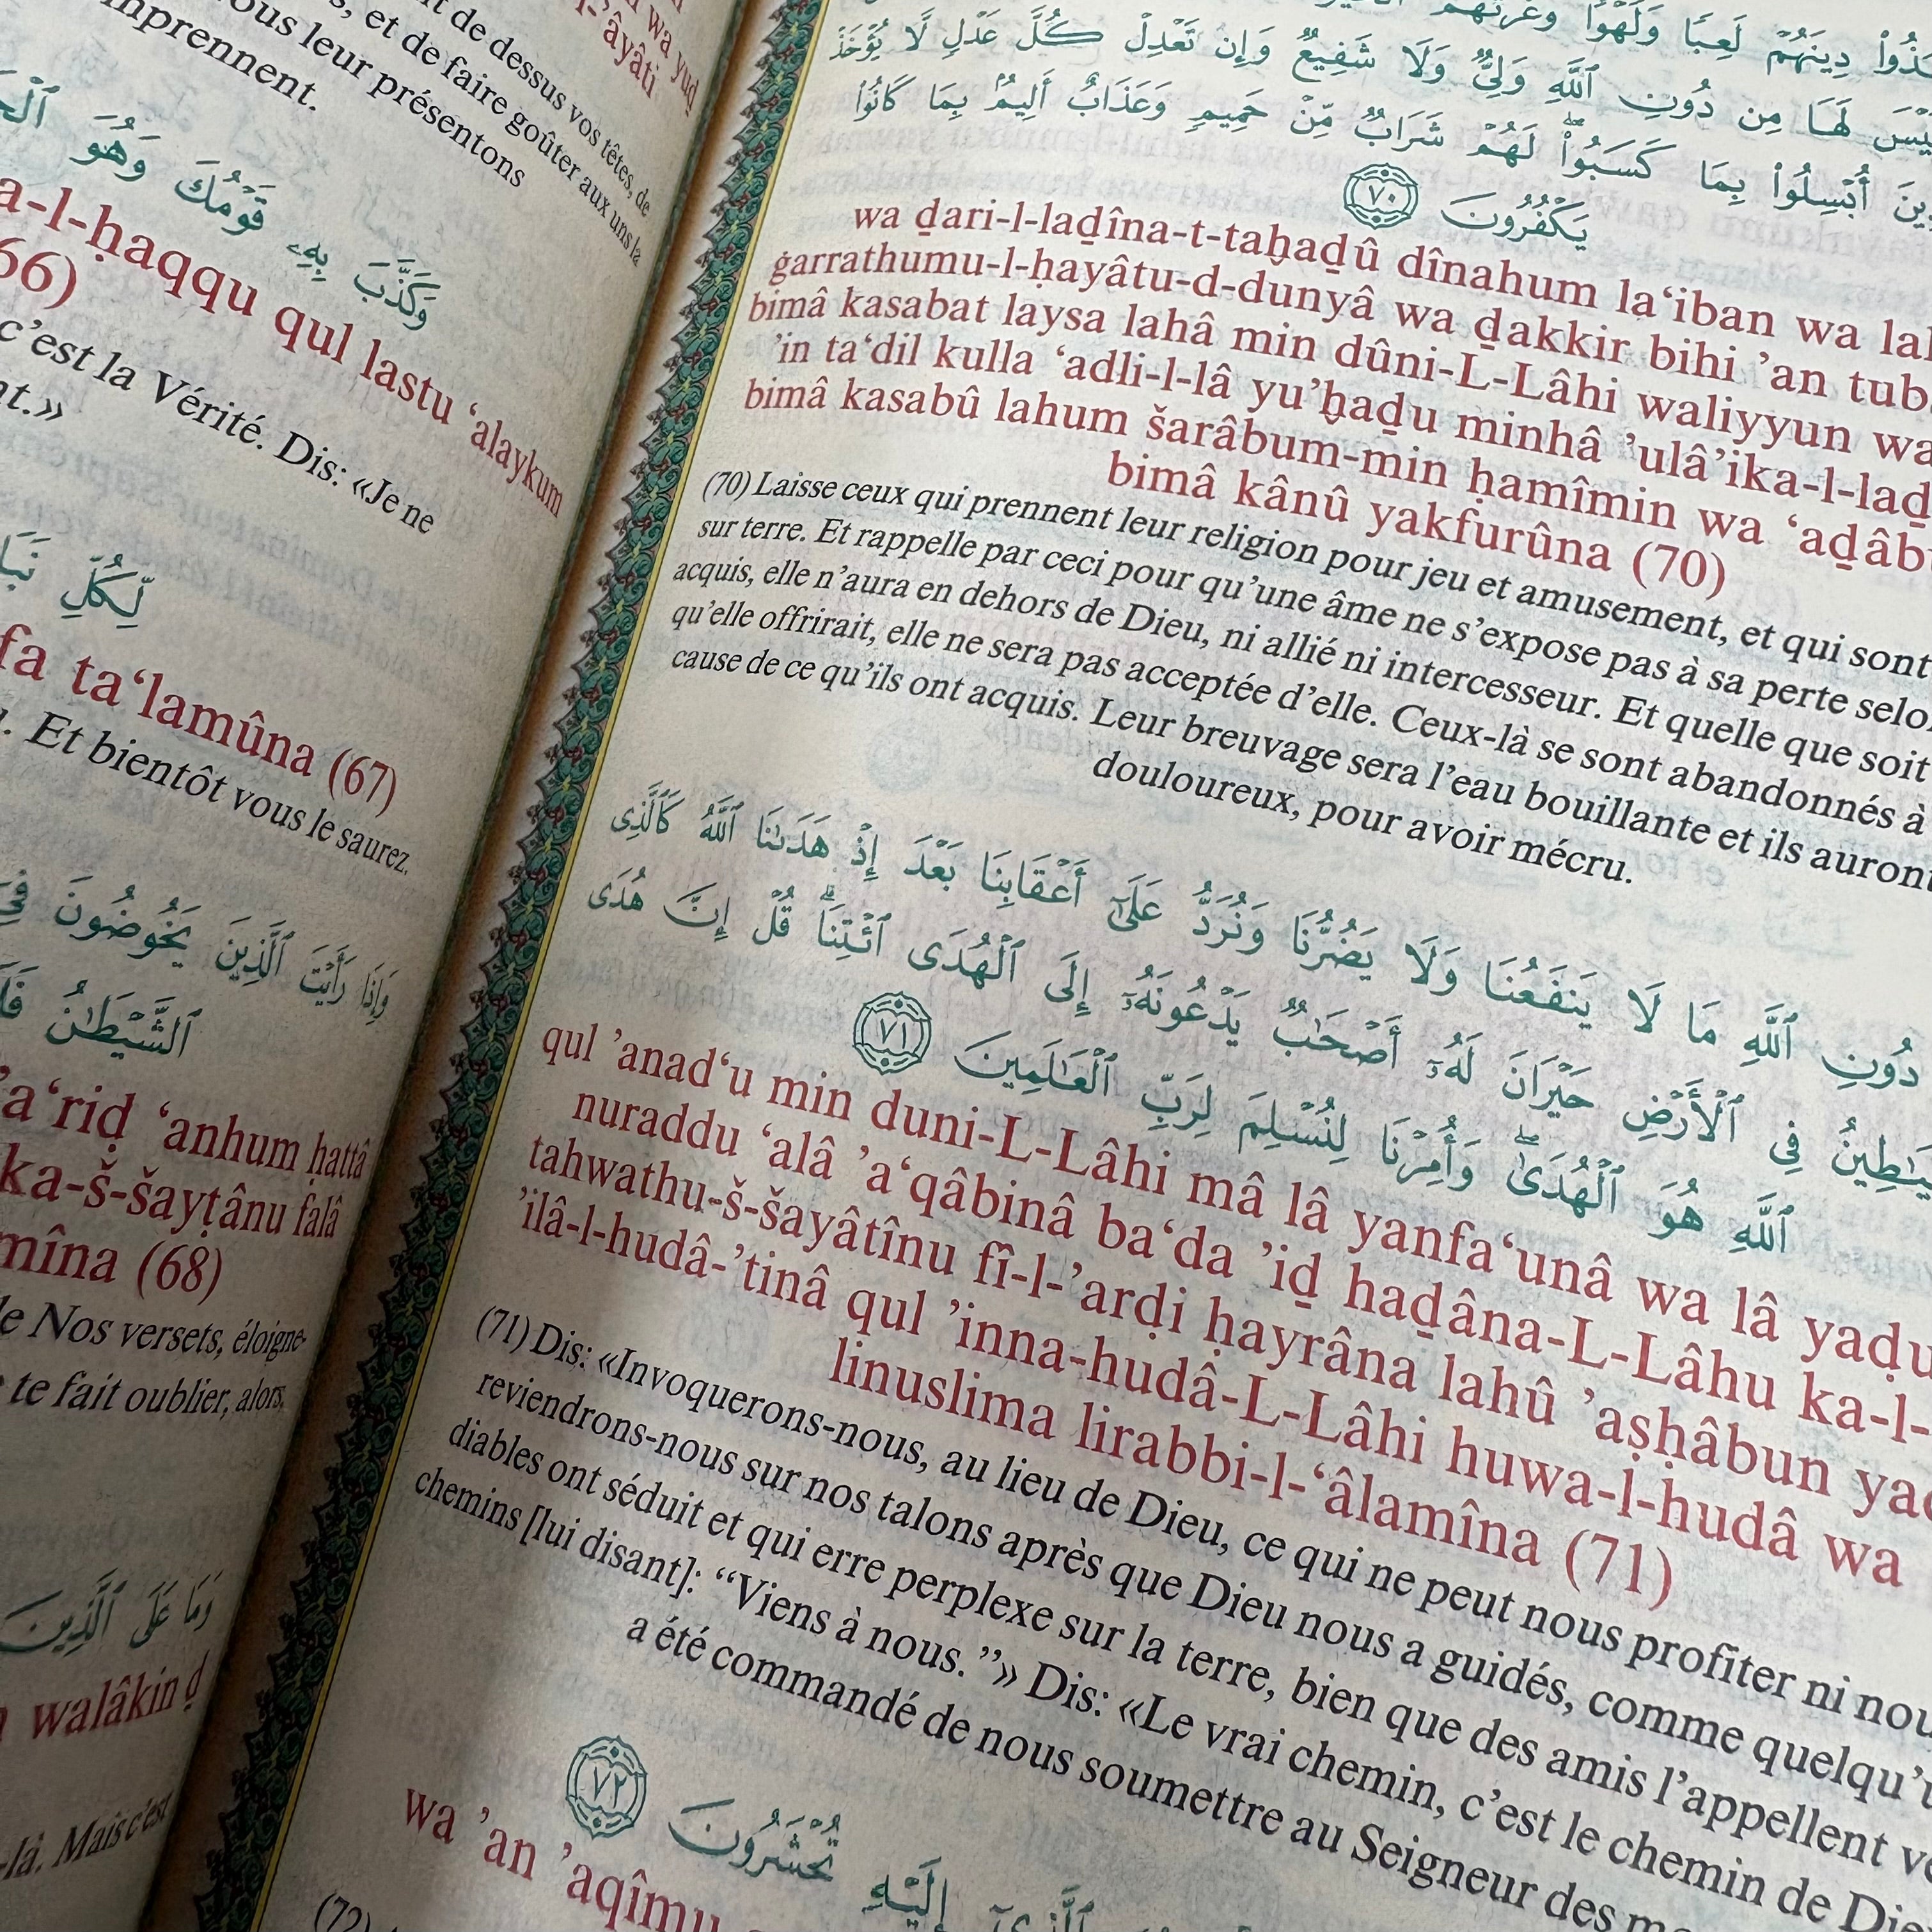 t de dessus vos têtes, de
, et de faire goûter aux uns la
ous leur présentons
mprennent.
وَكَذَّبَ بِهِۦ قَوْمُكَ وَهُوَ
a-l-ḥaqqu qul lastu ‘alaykum
66)
c’est la Vérité. Dis: «Je ne
nt.»
لِّكُلِّ
fa ta‘lamûna (67)
. Et bientôt vous le saurez.
وَإِذَا رَأَيْتَ ٱلَّذِينَ يَخُوضُونَ فِىٓ
ٱلشَّيْطَـٰنُ
’a‘riḍ ‘anhum ḥattâ
ka-š-šayṭânu falâ
mîna (68)
e Nos versets, éloigne-
te fait oublier, alors,
وَمَا عَلَى ٱلَّذِينَ
walâkin ḏ
-là. Mais c’est
دِينَهُمْ لَعِبًا وَلَهْوًا وَغَرَّتْهُمُ
لَهَا مِن دُونِ ٱللَّهِ وَلِىٌّ وَلَا شَفِيعٌ وَإِن تَعْدِلْ كُلَّ عَدْلٍ لَّا يُؤْخَذْ
أُبْسِلُوا۟ بِمَا كَسَبُوا۟ ۖ لَهُمْ شَرَابٌ مِّنْ حَمِيمٍ وَعَذَابٌ أَلِيمٌۢ بِمَا كَانُوا۟
يَكْفُرُونَ ٧٠
wa ḏari-l-laḏîna-t-taḫaḏû dînahum la‘iban wa lah
ġarrathumu-l-ḥayâtu-d-dunyâ wa ḏakkir bihi ’an tub
bimâ kasabat laysa lahâ min dûni-L-Lâhi waliyyun wa
’in ta‘dil kulla ‘adli-l-lâ yu’ḫaḏu minhâ ’ulâ’ika-l-laḏ
bimâ kasabû lahum šarâbum-min ḥamîmin wa ‘aḏâb
bimâ kânû yakfurûna (70)
(70) Laisse ceux qui prennent leur religion pour jeu et amusement, et qui sont
sur terre. Et rappelle par ceci pour qu’une âme ne s’expose pas à sa perte selo
acquis, elle n’aura en dehors de Dieu, ni allié ni intercesseur. Et quelle que soit
qu’elle offrirait, elle ne sera pas acceptée d’elle. Ceux-là se sont abandonnés à
cause de ce qu’ils ont acquis. Leur breuvage sera l’eau bouillante et ils auront
douloureux, pour avoir mécru.
دُونِ ٱللَّهِ مَا لَا يَنفَعُنَا وَلَا يَضُرُّنَا وَنُرَدُّ عَلَىٰٓ أَعْقَابِنَا بَعْدَ إِذْ هَدَىٰنَا ٱللَّهُ كَٱلَّذِى
فِى ٱلْأَرْضِ حَيْرَانَ لَهُۥٓ أَصْحَـٰبٌ يَدْعُونَهُۥٓ إِلَى ٱلْهُدَى ٱئْتِنَا ۗ قُلْ إِنَّ هُدَى
ٱللَّهِ هُوَ ٱلْهُدَىٰ ۖ وَأُمِرْنَا لِنُسْلِمَ لِرَبِّ ٱلْعَـٰلَمِينَ ٧١
qul ’anad‘u min duni-L-Lâhi mâ lâ yanfa‘unâ wa lâ yaḍu
nuraddu ‘alâ ’a‘qâbinâ ba‘da ’iḏ haḏâna-L-Lâhu ka-l-
tahwathu-š-šayâtînu fî-l-’arḍi ḥayrâna lahû ’aṣḥâbun yad
’ilâ-l-hudâ-’tinâ qul ’inna-hudâ-L-Lâhi huwa-l-hudâ wa
linuslima lirabbi-l-‘âlamîna (71)
(71) Dis: «Invoquerons-nous, au lieu de Dieu, ce qui ne peut nous profiter ni nou
reviendrons-nous sur nos talons après que Dieu nous a guidés, comme quelqu’u
diables ont séduit et qui erre perplexe sur la terre, bien que des amis l’appellent ve
chemins [lui disant]: “Viens à nous.”» Dis: «Le vrai chemin, c’est le chemin de Die
a été commandé de nous soumettre au Seigneur des
إِلَيْهِ تُحْشَرُونَ ٧٢
wa ’an ’aqîmu
(72)